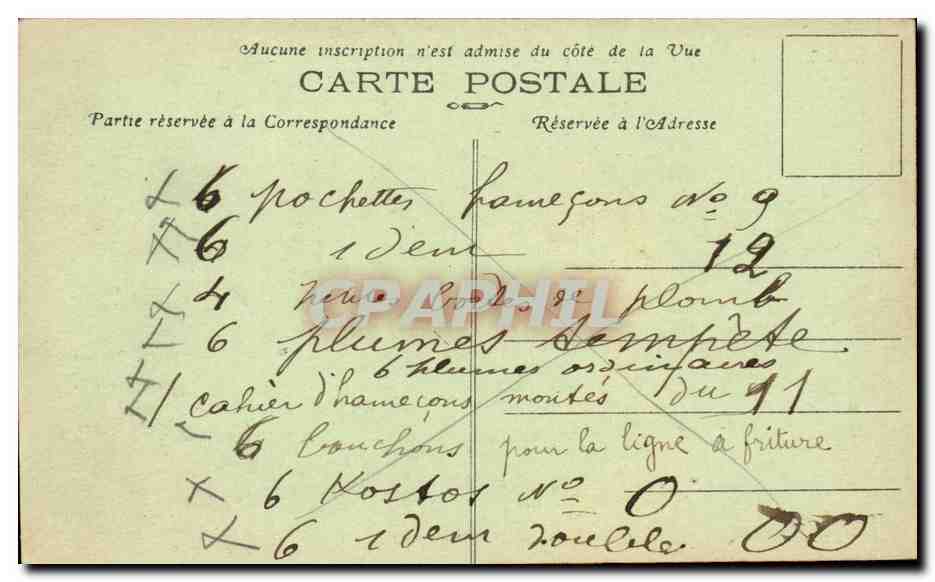 Aucune inscription n'est admise du côté de la Vue
CARTE POSTALE
Partie réservée à la Correspondance
Réservée à l'Adresse
6 pochettes hameçons No 9
6 idem 12
4 petites boîtes de plomb
CPAPHIL
6 plumes tempète
6 plumes ordinaires
1 cahier d'hameçons montés du 11
6 bouchons pour la ligne à friture
6 Kostos No 0
6 idem double 00